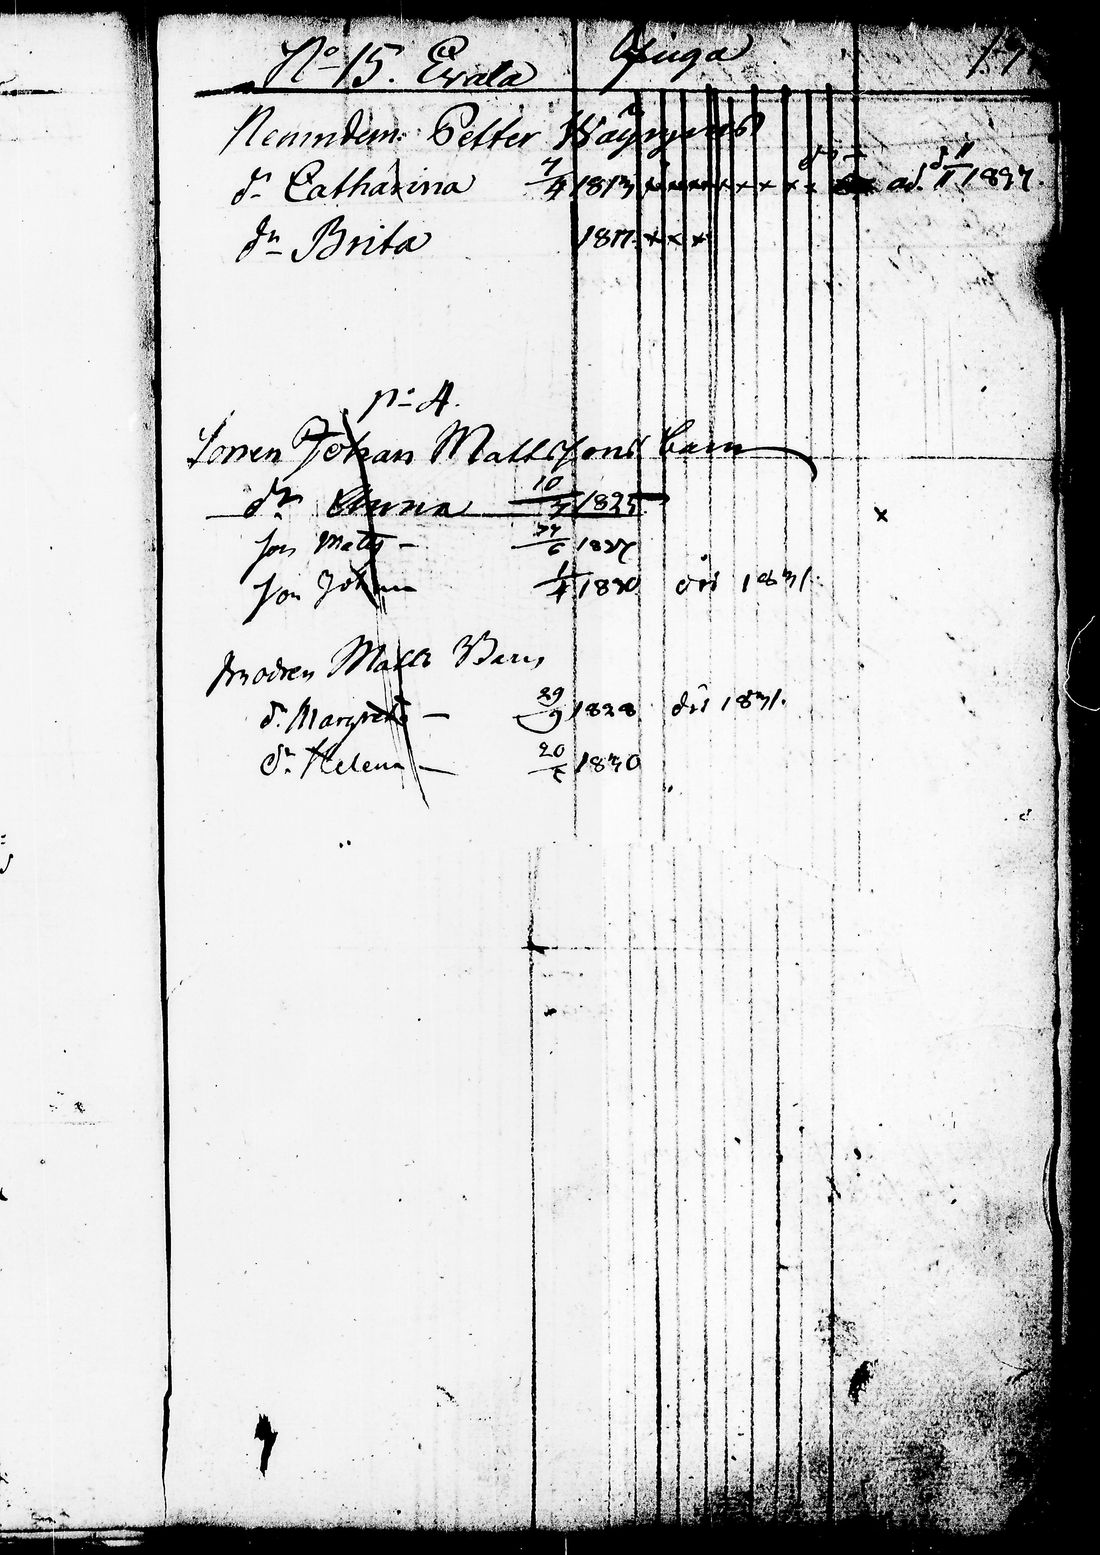 No 15. Erala
Petter
dr Catharina 7/4 1813 × × × × × × × × ad. 1837.
dr Brita 1817. × × ×
No 4.
Sonen Johan Mattssons barn
dr Anna 10/3 1825 ×
son Matts — 27/6 1827
son Johan 1/4 1830 död 1831.
Matts Barn
d. Margreta — 29/9 1828 död 1831.
dr Helena — 20/5 1830